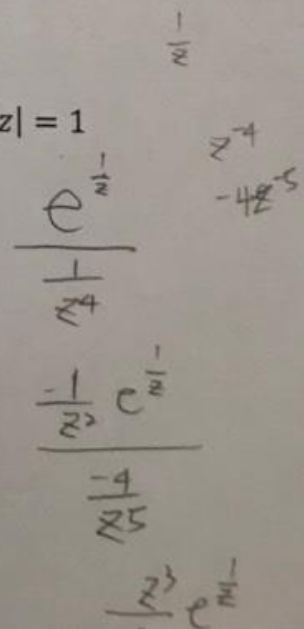 1/z
z| = 1
z^-4
-4z^-5
e^(1/z)
1/z^4
-1/z^2 e^(1/z)
-4/z^5
z^3 e^(1/z)